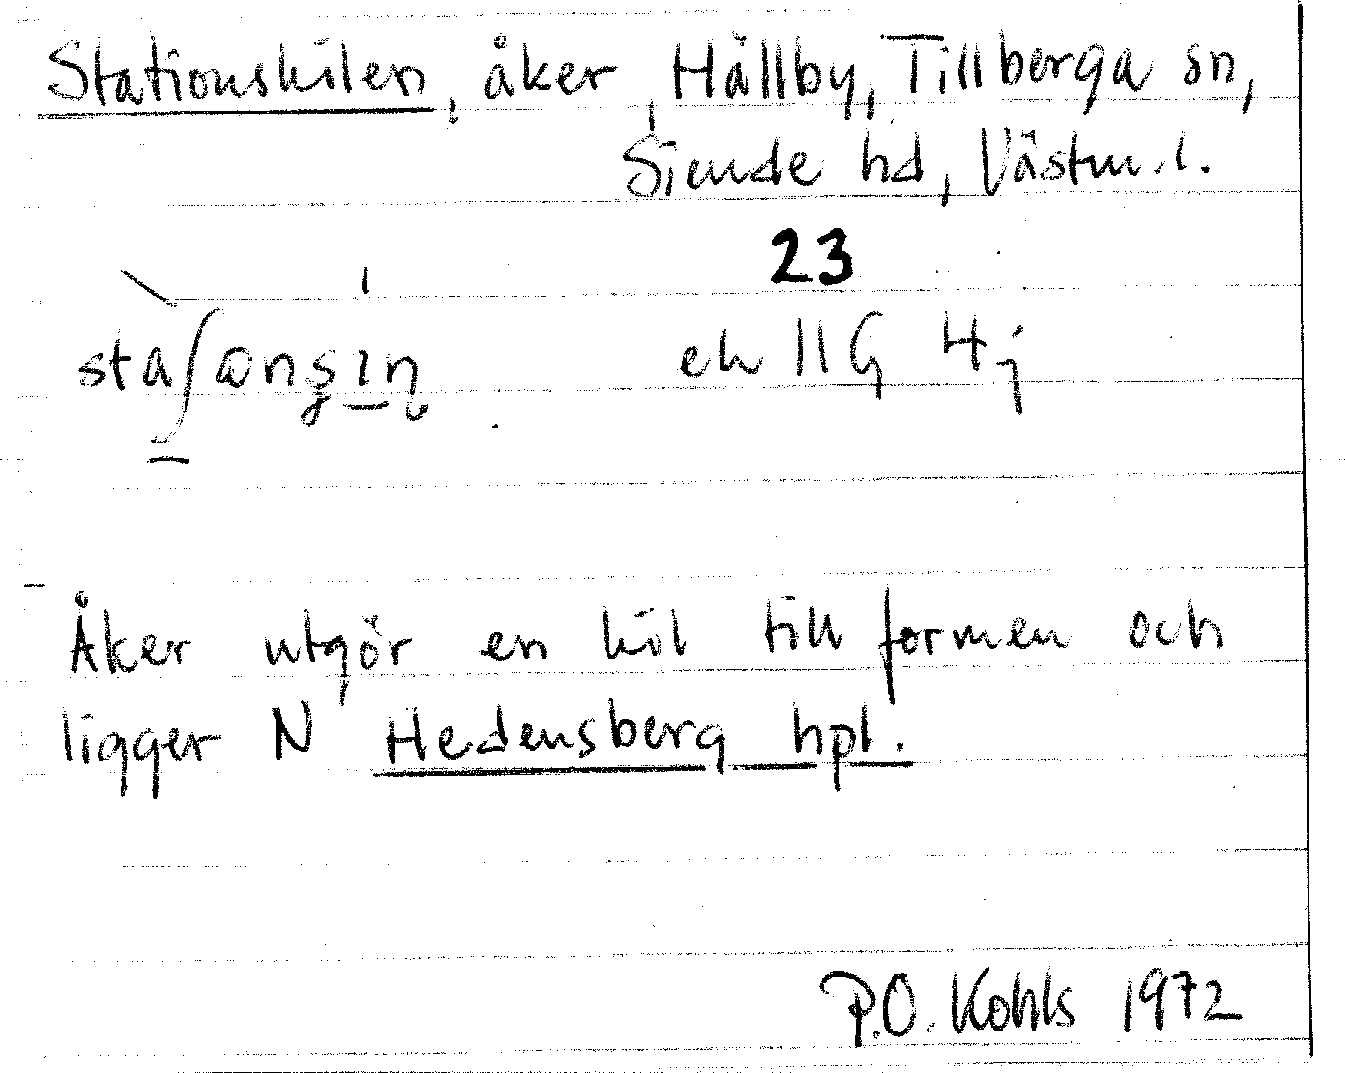 Stationskilen, åker, Hällby, Tillberga sn,
Siende hd, Västm.l.
23
ek 11G 4j
Åker utgör en kil till formen och
ligger N Hedensberg hpl.
P.O. Kohls 1972